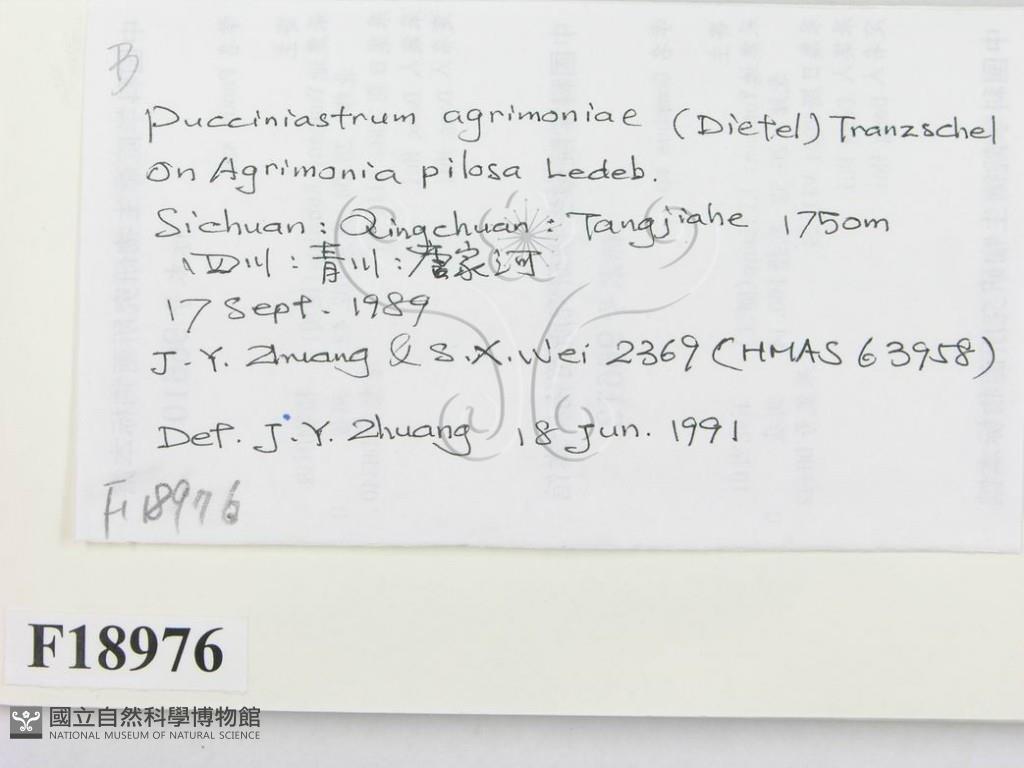 B
Pucciniastrum agrimoniae (Dietel) Tranzschel
on Agrimonia pilosa Ledeb.
Sichuan : Qingchuan : Tangjiahe 1750m
四川 : 青川 : 唐家河
17 Sept. 1989
J. Y. Zhuang & S. X. Wei 2369 (HMAS 63958)
Det. J. Y. Zhuang 18 Jun. 1991
F18976
F18976
國立自然科學博物館
NATIONAL MUSEUM OF NATURAL SCIENCE